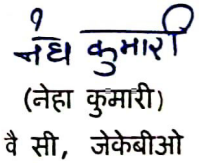 नेहा कुमारी
(नेहा कुमारी)
वै सी, जेकेबीओ